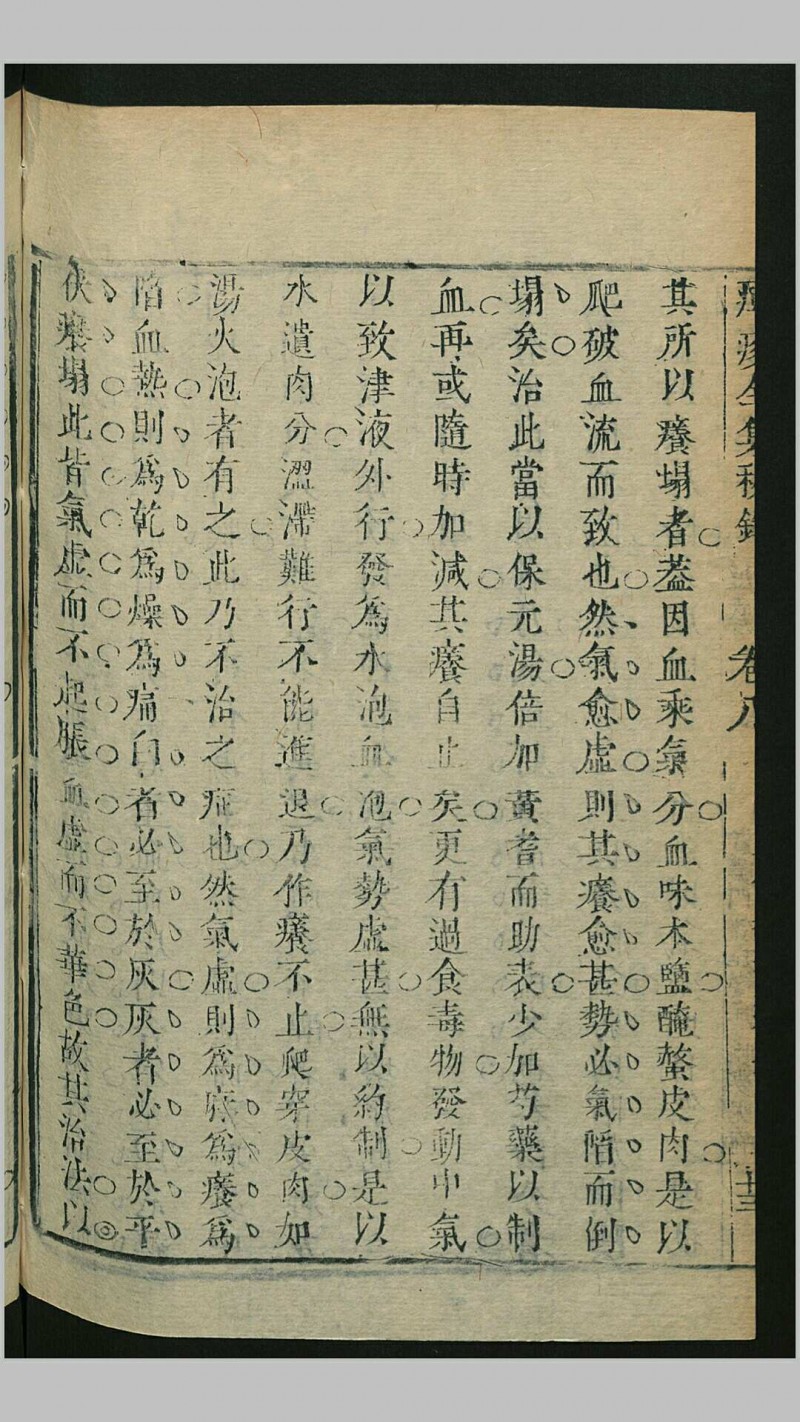 痘疹全集 卷八
其所以癢塌者葢因血乘氣分血味本鹽醃螫皮肉是以
爬破血流而致也然氣愈虛則其癢愈甚勢必氣陷而倒
塌矣治此當以保元湯倍加黃耆而助表少加芍藥以制
血再或隨時加減其癢自止矣更有過食毒物發動中氣
以致津液外行發爲水泡血泡氣勢虛甚無以約制是以
水遺肉分澀滯難行不能進退乃作癢不止爬穿皮肉如
湯火泡者有之此乃不治之症也然氣虛則爲癢爲
陷血熱則爲乾爲燥爲痛白者必至於灰灰者必至於平
伏癢塌此皆氣虛而不起脹血虛而不華色故其治法以